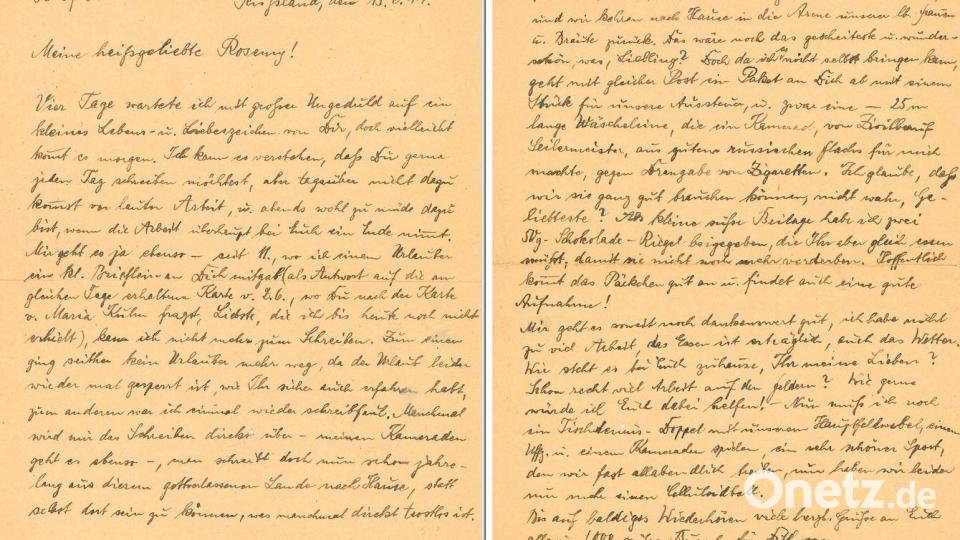 Rußland, den 15.6.44.
Meine heißgeliebte Rosemy!
Vier Tage wartete ich mit großer Ungeduld auf ein
kleines Lebens- u. Liebeszeichen von Dir, doch vielleicht
kommt es morgen. Ich kann es verstehen, daß Du gerne
jeden Tag schreiben möchtest, aber tagsüber nicht dazu
kommst vor lauter Arbeit, u. abends wohl zu müde dazu
bist, wenn die Arbeit überhaupt bei Euch ein Ende nimmt.
Mir geht es ja ebenso – seit 11., wo ich einem Urlauber
ein kl. Brieflein an Dich mitgab (als Antwort auf die am
gleichen Tage erhaltene Karte v. 2.6., wo Du nach der Karte
v. Maria Kühn fragst, Liebste, die ich bis heute noch nicht
erhielt), kam ich nicht mehr zum Schreiben. Zum einen
ging seither kein Urlauber mehr weg, da der Urlaub leider
wieder mal gesperrt ist, wie Ihr sicher auch erfahren habt,
zum anderen war ich einmal wieder schreibfaul. Manchmal
wird mir das Schreiben direkt über – meinen Kameraden
geht es ebenso –, man schreibt doch nun schon jahre-
lang aus diesem gottverlassenen Lande nach Hause, statt
selbst dort sein zu können, was manchmal direkt trostlos ist.
und wir kehren nach Hause in die Arme unserer lb. Frauen
u. Bräute zurück. Das wäre noch das gescheiteste u. wunder-
schön, was, Liebling? Doch da ich nicht selbst bringen kann,
geht mit gleicher Post ein Paket an Dich ab mit einem
Stück für unsere Aussteuer, u. zwar eine – 25 m
lange Wäscheleine, die ein Kamerad, von Zivilberuf
Seilermeister, aus gutem russischen Flachs für mich
machte, gegen Drangabe von Zigaretten. Ich glaube, daß
wir sie ganz gut brauchen können, nicht wahr, Ge-
liebteste? Als kleine süße Beilage habe ich zwei
50g-Schokolade-Riegel beigegeben, die Ihr aber gleich essen
müßt, damit sie nicht noch mehr verderben. Hoffentlich
kommt das Päckchen gut an u. findet auch eine gute
Aufnahme!
Mir geht es soweit noch dankenswert gut, ich habe nicht
zu viel Arbeit, das Essen ist erträglich, auch das Wetter.
Wie steht es bei Euch zuhause, Ihr meine Lieben?
Schon recht viel Arbeit auf den Feldern? Wie gerne
würde ich Euch dabei helfen! – Nun muß ich noch
ein Tischtennis-Doppel mit unserem Hauptfeldwebel, einem
Uffz. u. einem Kameraden spielen, ein sehr schöner Sport,
den wir fast allabendlich, nun haben wir leider
nur mehr einen Celluloidball.
Bis auf baldiges Wiederhören viele herzl. Grüße an Euch
Onetz.de